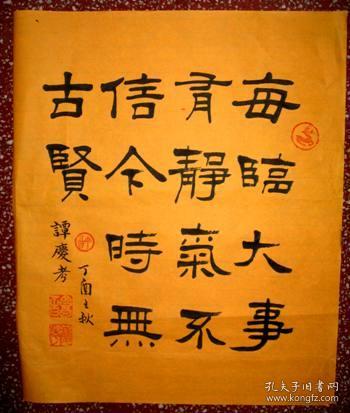 每臨大事
有靜氣不
信今時無
古賢
丁酉之秋
譚慶考
孔夫子旧书网
www.kongfz.com